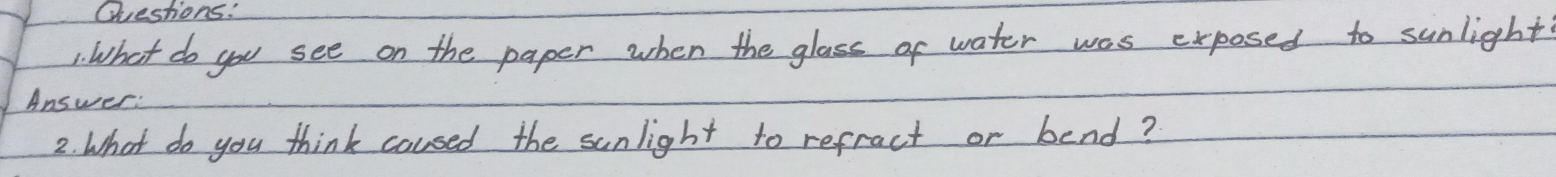 Questions:
1. What do you see on the paper when the glass of water was exposed to sunlight?
Answer:
2. What do you think caused the sunlight to refract or bend?